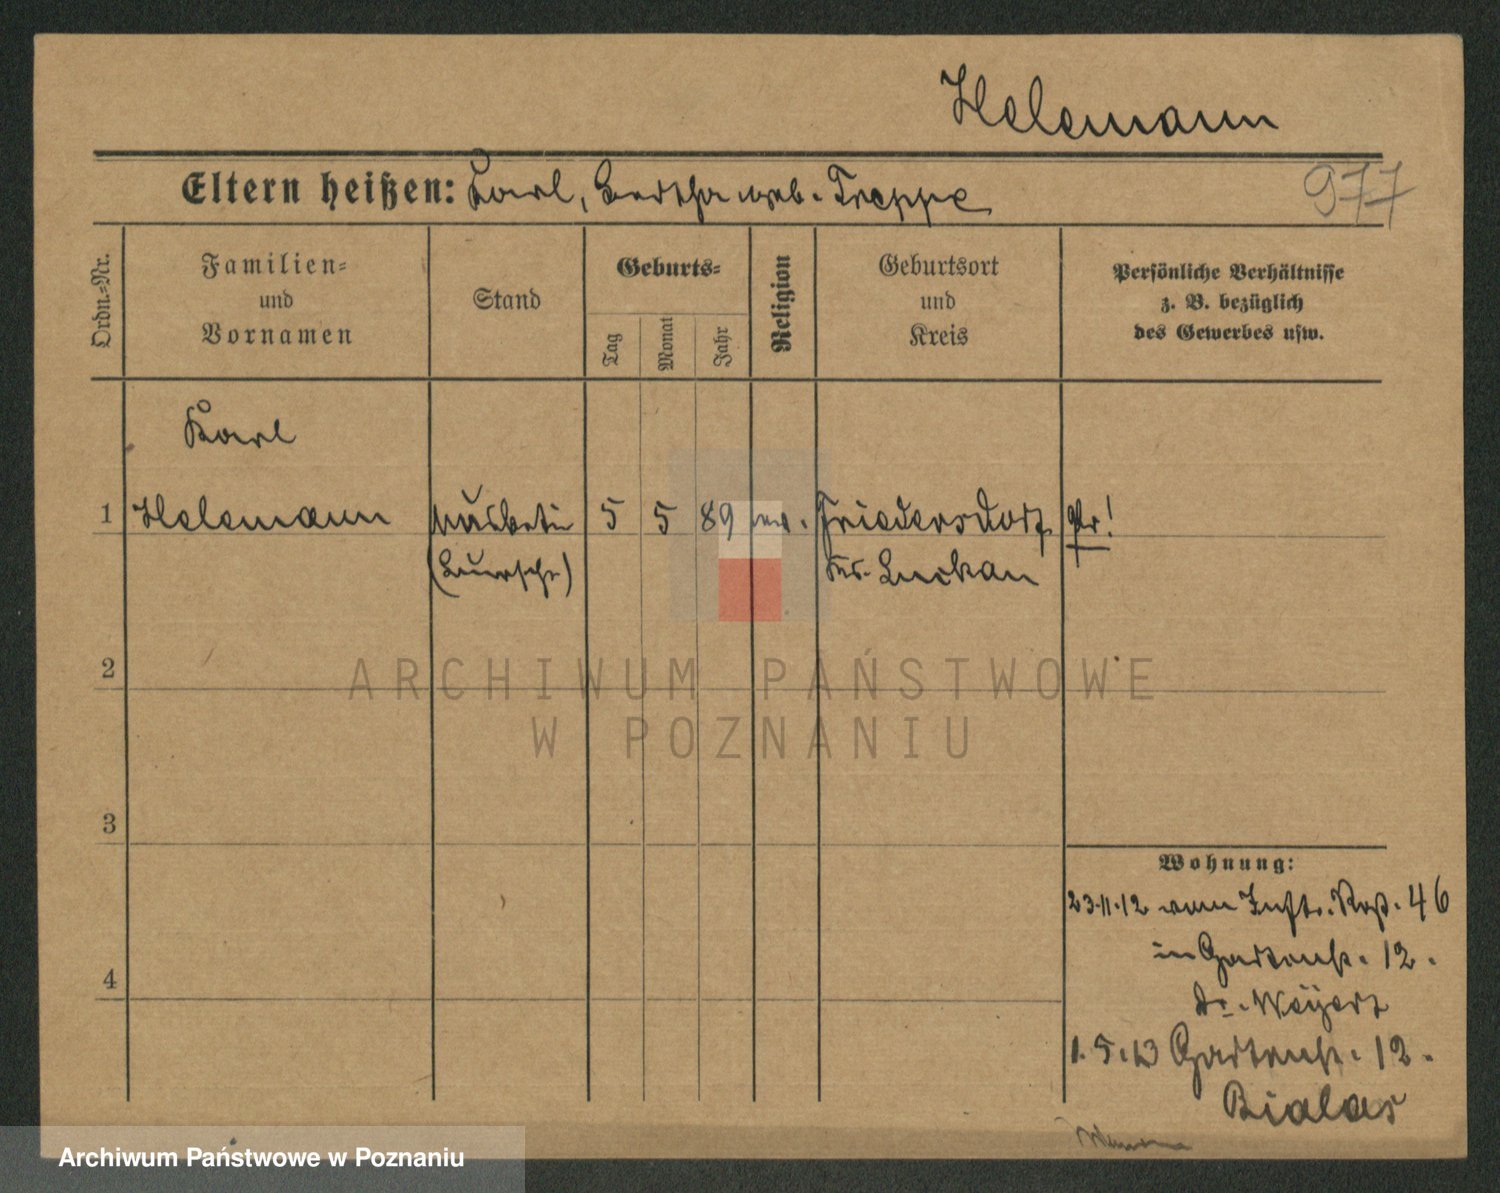 Helemann
Eltern heißen: Karl, Bertha geb. Treppe
977
Ordn.-Nr.
Familien-
und
Vornamen
Stand
Geburts-
Tag
Monat
Jahr
Religion
Geburtsort
und
Kreis
Persönliche Verhältnisse
z. B. bezüglich
des Gewerbes usw.
Karl
1 Helemann 5 5 89 ev. Friedersdorf Pr!
(Bursche) Krs. Luckau
2
ARCHIWUM PAŃSTWOWE
W POZNANIU
3
Wohnung:
23.11.12 vom Inftr. Rgt. 46
in Gartenstr. 12.
Dr. Weyert
4
1.5.13 Gartenstr. 12.
Bialas
Archiwum Państwowe w Poznaniu